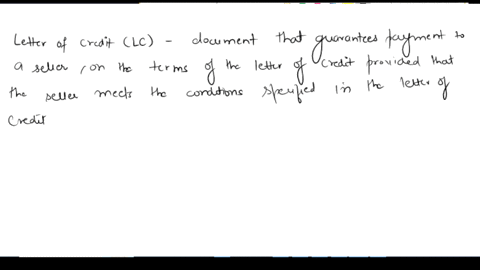 Letter of credit (LC) - document that guarantees payment to
a seller, on the terms of the letter of credit provided that
the seller meets the conditions specified in the letter of
credit